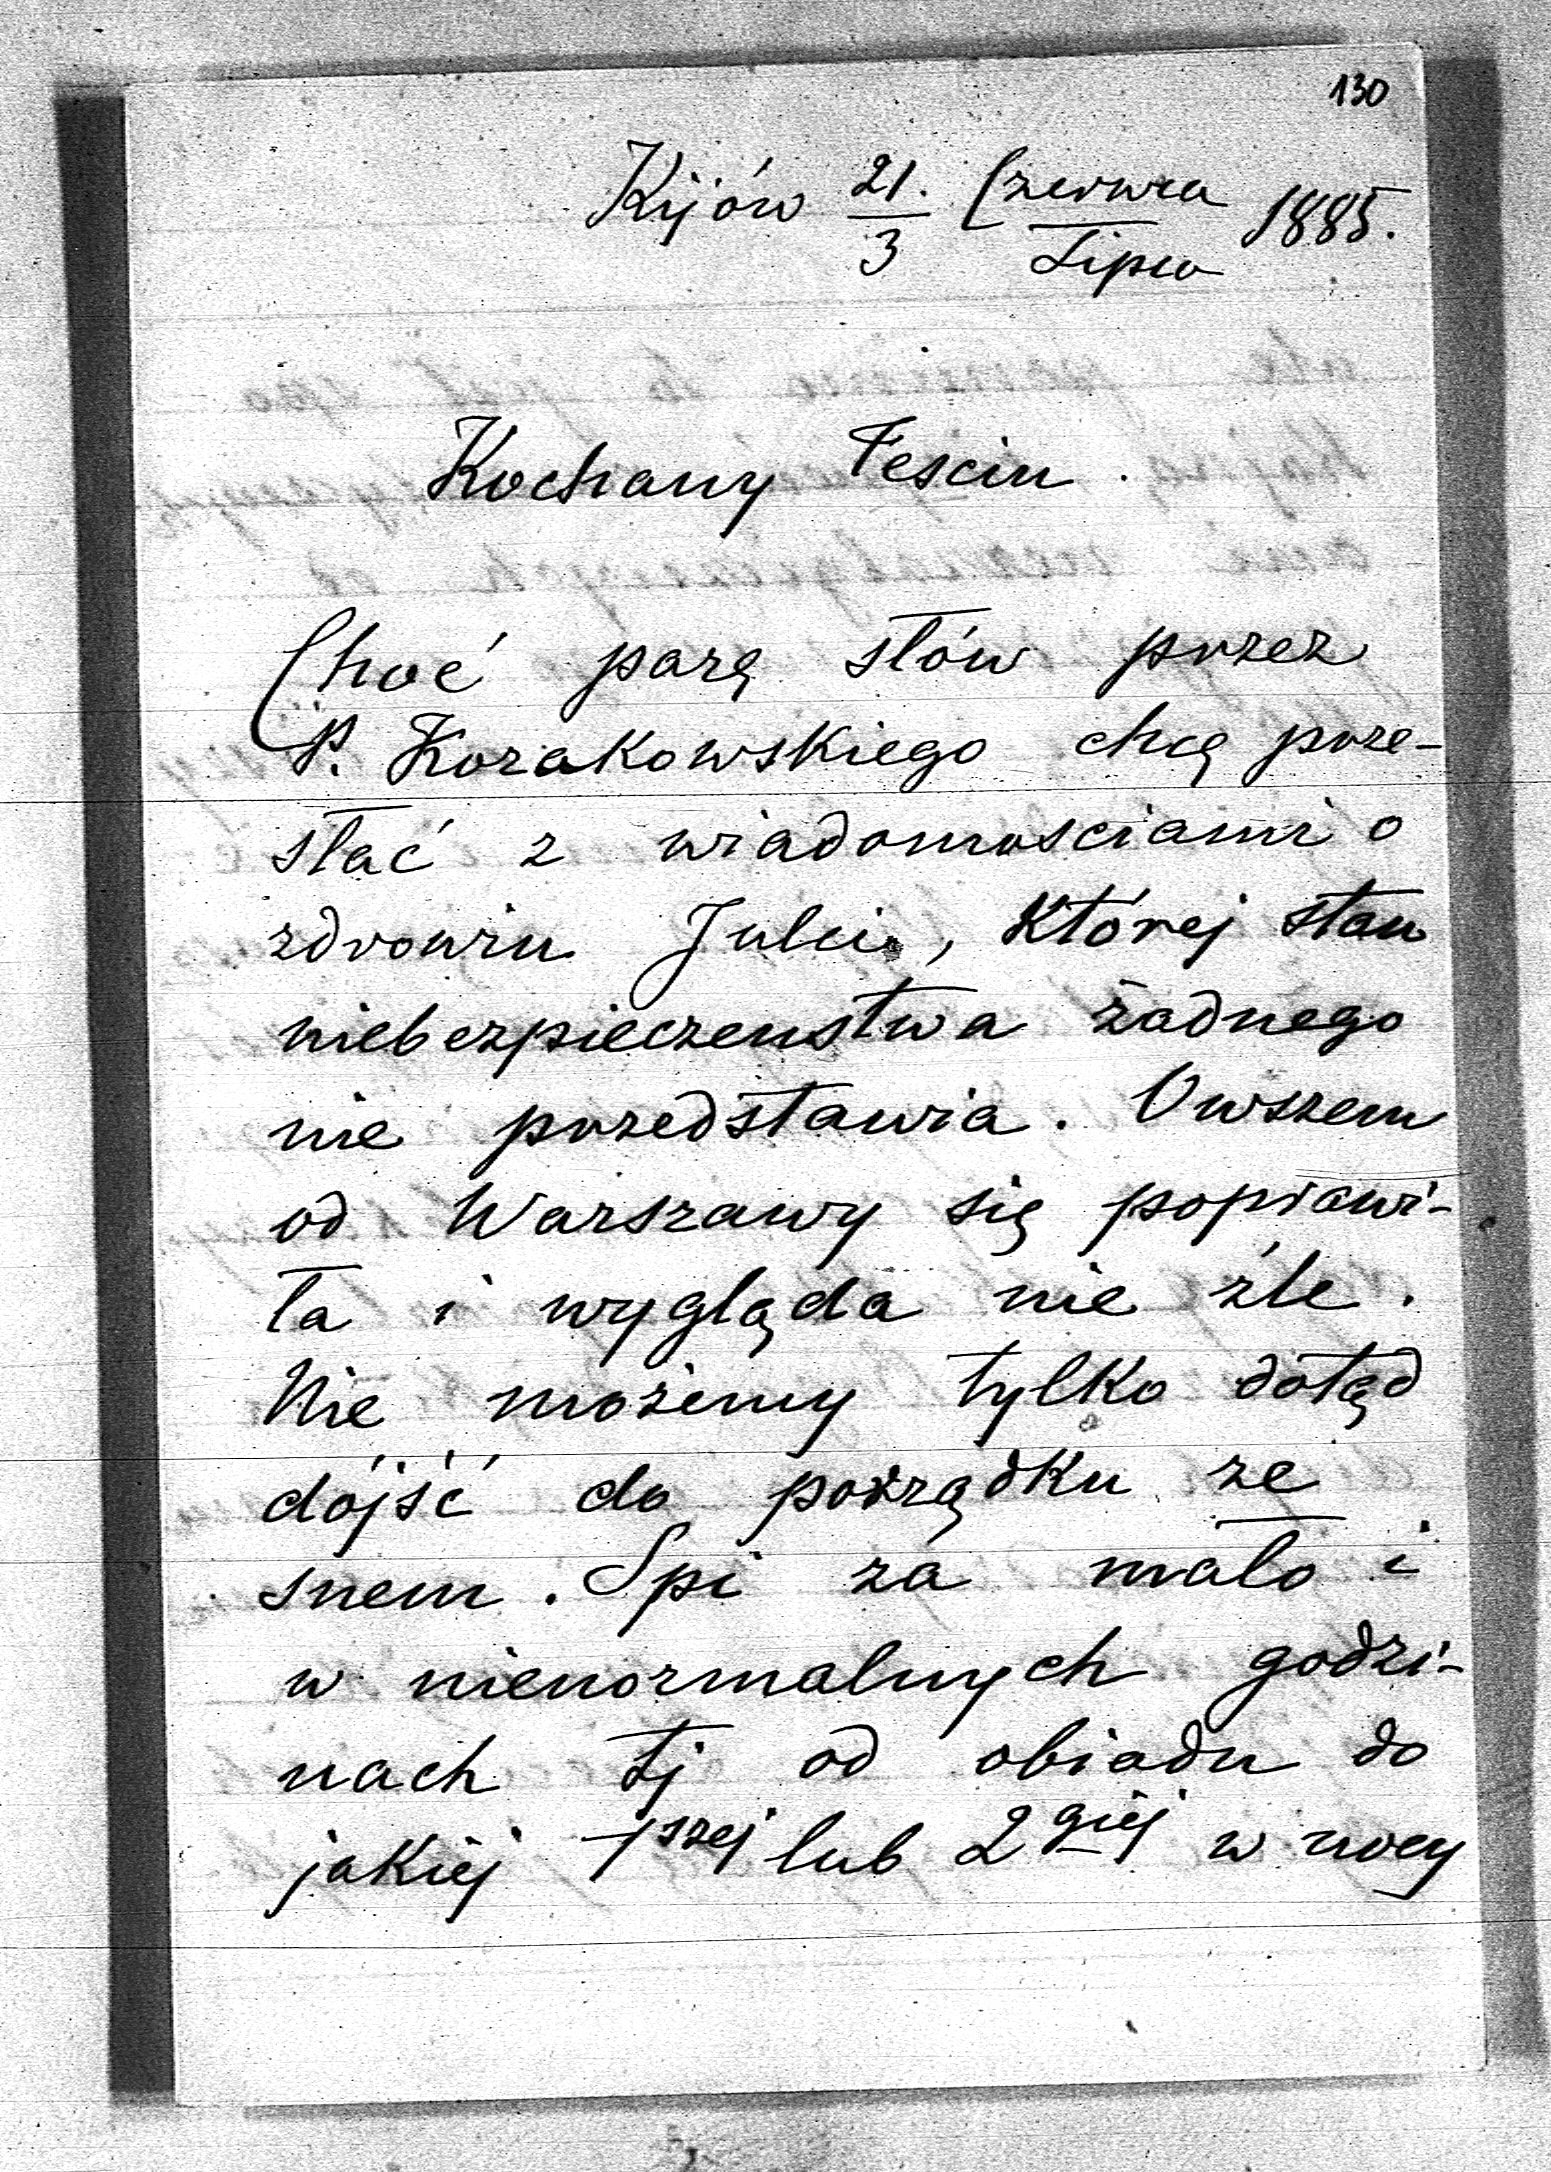 130
Kijów 21. Czerwca 1885.
3 Lipca
Kochany Fesciu.
Choć parę słów przez
P. Kozakowskiego chcę prze-
słać z wiadomosciami o
zdrowiu Julci, której stan
niebezpieczenstwa żadnego
nie przedstawia. Owszem
od Warszawy się poprawi-
ła i wygląda nie źle.
Nie możemy tylko dotąd
dójść do porządku ze
snem. Spi za mało i
w nienormalnych godzi-
nach tj od obiadu do
jakiej 1szej lub 2giej w nocy